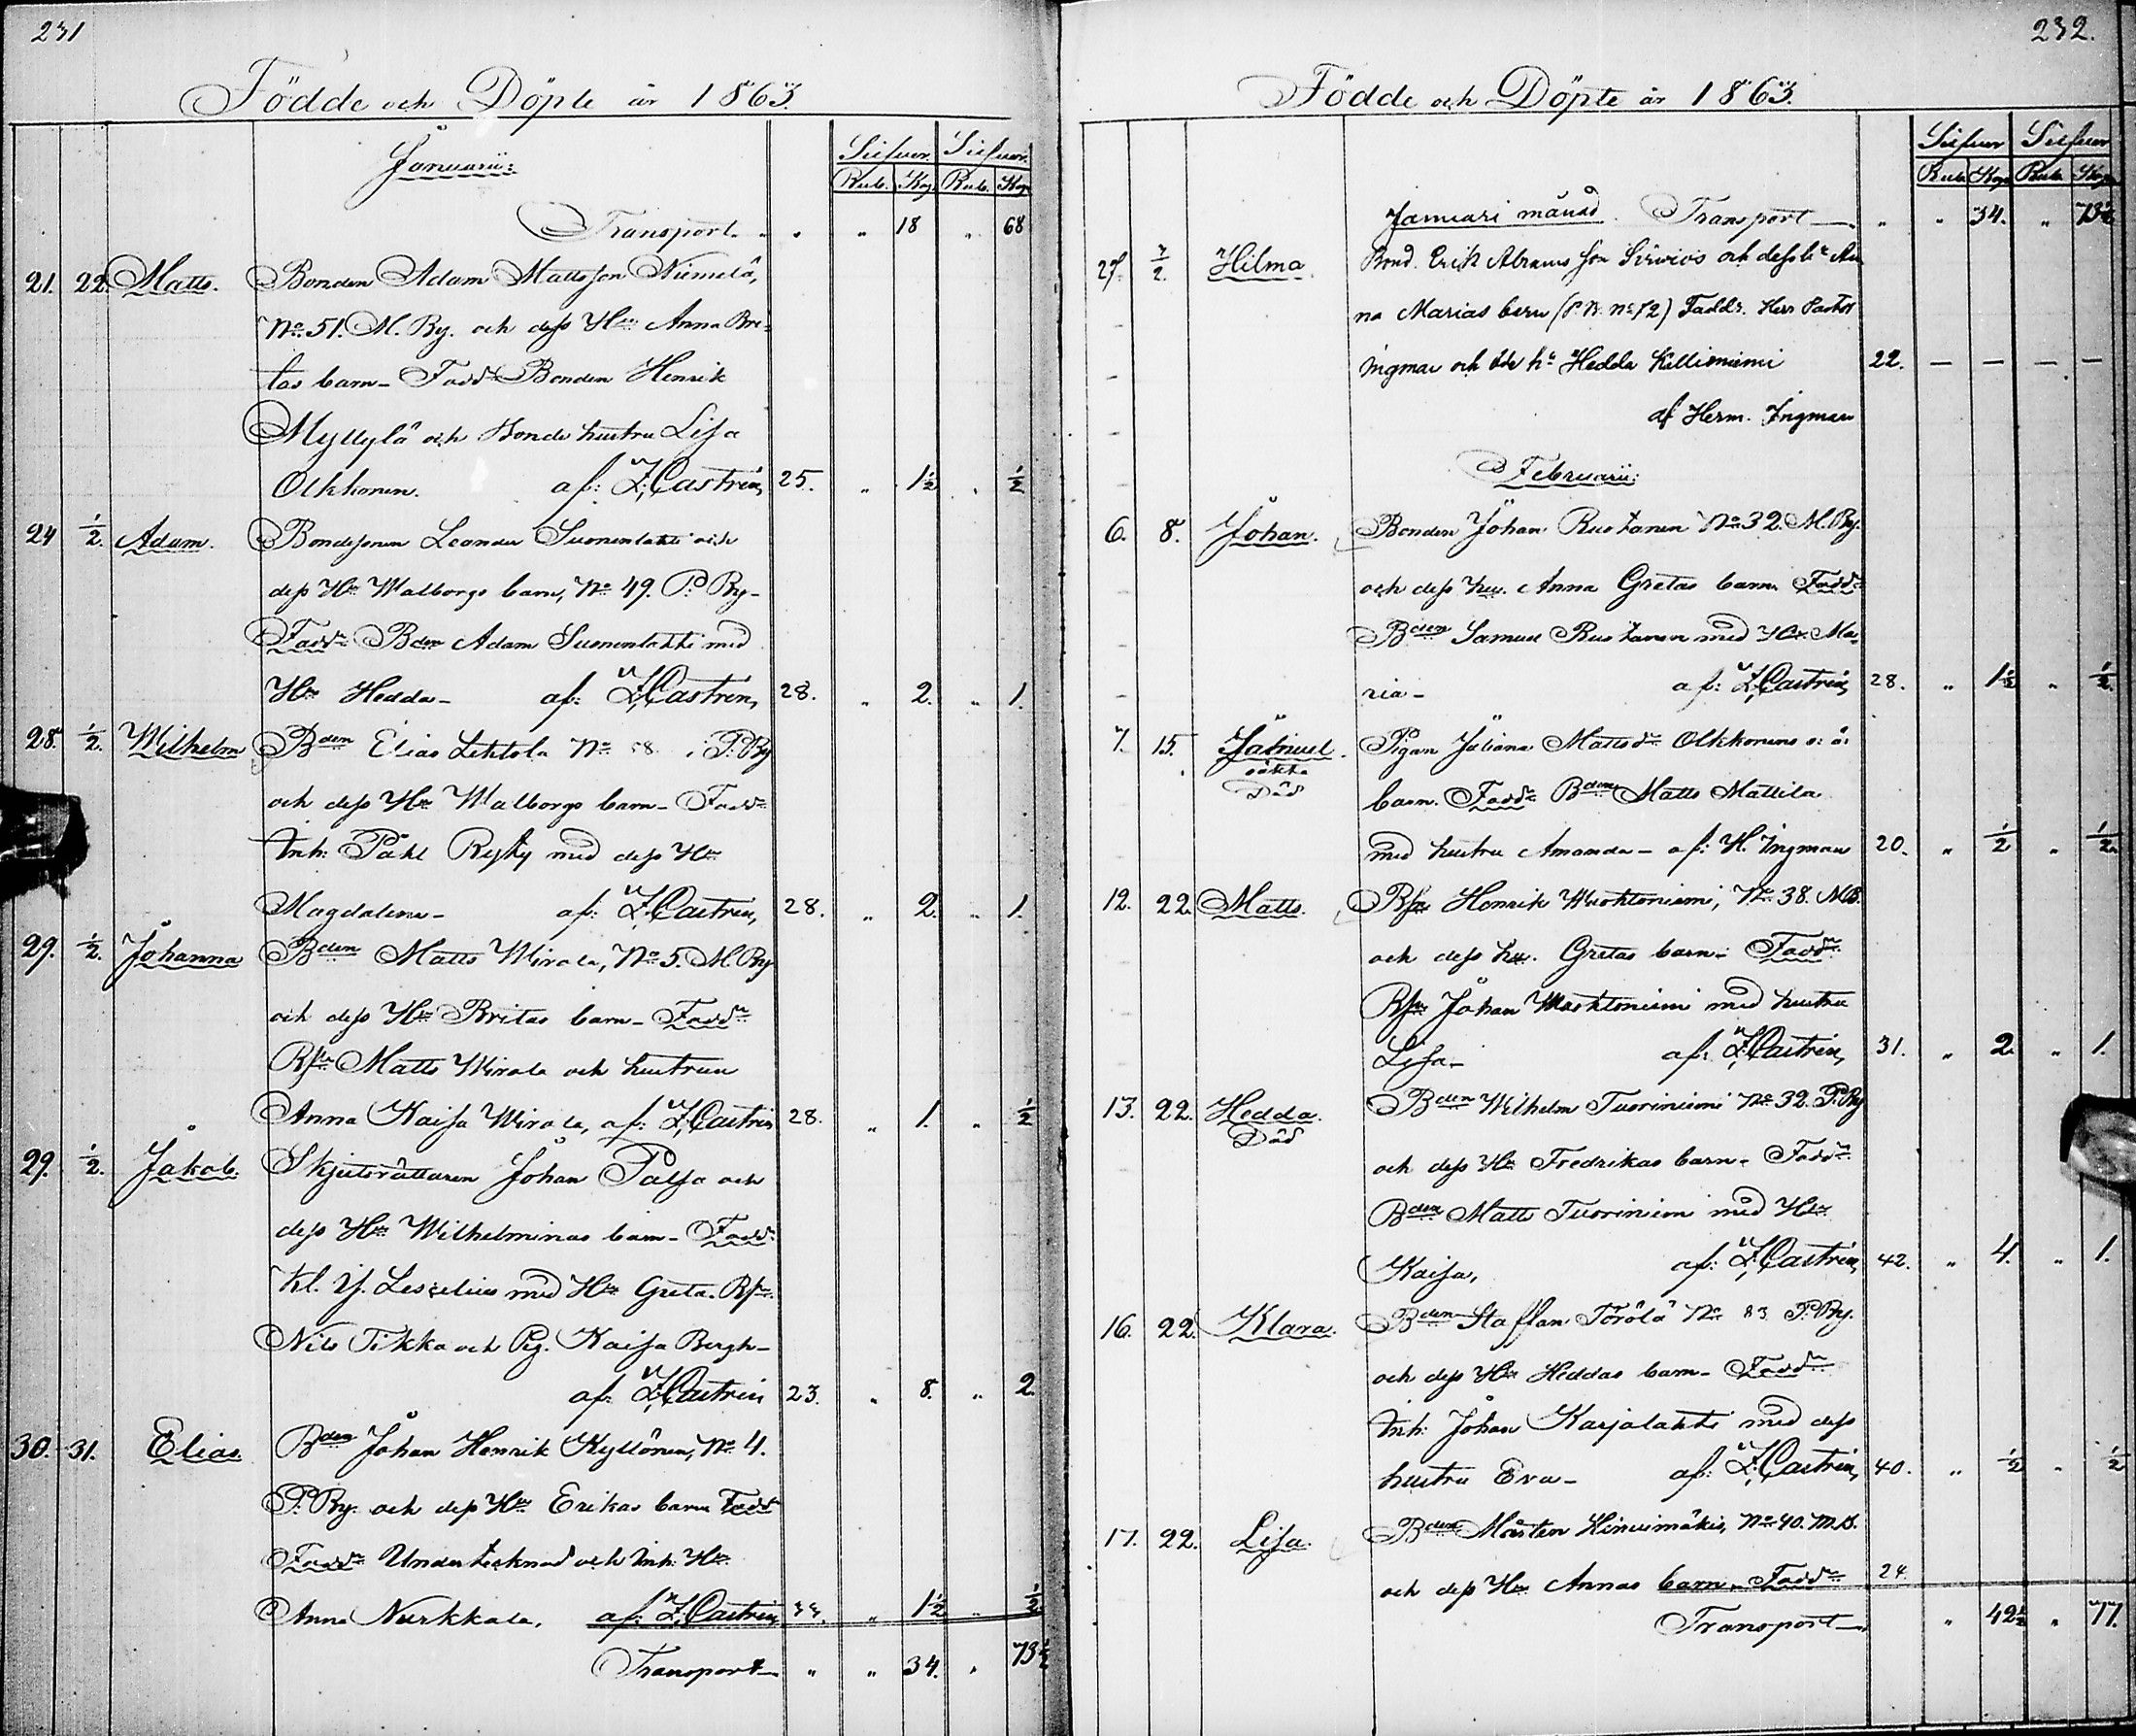 231
Födde och Döpte år 1863.
Januarii:
Silfver. Silfver.
Rub. Kop. Rub. Kop.
Transport. " " 18 " 68
21. 22. Matts. Bonden Adam Mattsson Niemelä,
No. 51. M. By. och dess Hu Anna Bri-
tas barn - Fadd. Bonden Henrik
Myllylä och Bonde hustru Lisa
Olkkonen. af: Z. Castrén, 25. " 1½ " ½
24 1/2. Adam. Bondesonen Leander Suonenlahti och
dess Hu Walborgs barn, No. 49. P. By -
Fadd. Bden Adam Suonenlahti med
Hu Hedda - af: Z. Castrén, 28. " 2. " 1.
28. 1/2. Wilhelm Bden Elias Lehtola No. 58. P. By
och dess Hu Walborgs barn - Fadd.
Inh: Påhl Rysky med dess Hu
Magdalena - af: Z. Castrén, 28. " 2. " 1.
29. 1/2. Johanna Bden Matts Wirala, No. 5. M. By
och dess Hu Britas barn - Fadd.
Bsn Matts Wirala och hustrun
Anna Kaisa Wirala, af: Z. Castrén 28. " 1. " ½
29. 1/2. Jakob. Skjutsrättaren Johan Palsa och
dess Hu Wilhelminas barn - Fadd.
Kl. Lescelius med Hu Greta. Bsn.
Nils Tikka och Pig. Kaisa Bergh -
af: Z. Castrén 23. " 8. " 2.
30. 31. Elias Bden Johan Henrik Kyllönen, No. 4.
P. By. och dess Hu Erikas barn Fadd
Fadd. Undertecknad och Inh: Hu
Anna Nurkkala. af: Z. Castrén, 33. " 1½ " ½
Transport - " " 34. " 73½
232.
Födde och Döpte år 1863.
Silfver Silfver
Rub. Kop. Rub. Kop.
Januari månad. Transport - " " 34. " 73½
27. 7/2. Hilma. Bond. Erik Abramsson Sirviös och dess h. An
na Marias barn (P.B. no 12) Faddr. Herr Pastor
Ingman och h. Hedda Kellioniemi 22. - - - -
af Herm. Ingman
Februarii:
6. 8. Johan. Bonden Johan Ruotanen No. 32. M. By.
och dess hu. Anna Gretas barn Fadd.
Bden Samuel Ruotanen med Hu Ma-
ria - af: Z. Castrén, 28. " 1½ " ½
7. 15. Gabriel. Pigan Juliana Mattsdr Olkkonens o: ä:
oäkta
Död barn. Fadd. Bden Matts Mattila
med hustru Amanda - af: H. Ingman 20. " ½ " ½
12. 22. Matts. Bsn Henrik Wuohtoniemi, No. 38. MB.
och dess hu. Gretas barn - Fadd.
Bsn Johan Wuohtoniemi med hustru
Lisa - af: Z. Castrén, 31. " 2. " 1.
13. 22. Hedda. Bden Wilhelm Tuoriniemi No. 32. P. By
Död
och dess Hu Fredrikas barn - Fadd.
Bden Matts Tuoriniemi med Hu
Kaisa, af: Z. Castrén, 42. " 4. " 1.
16. 22. Klara. Bden Staffan Törölä No. 83 P. By.
och dess Hu Heddas barn - Fadd.
Inh: Johan Karjalahti med dess
hustru Eva - af: Z. Castrén, 40. " ½ " ½
17. 22. Lisa. Bden Mårten Hinvimäkis, No. 40. M.B.
och dess Hu Annas barn - Fadd. 24.
Transport - " 42½ " 77.